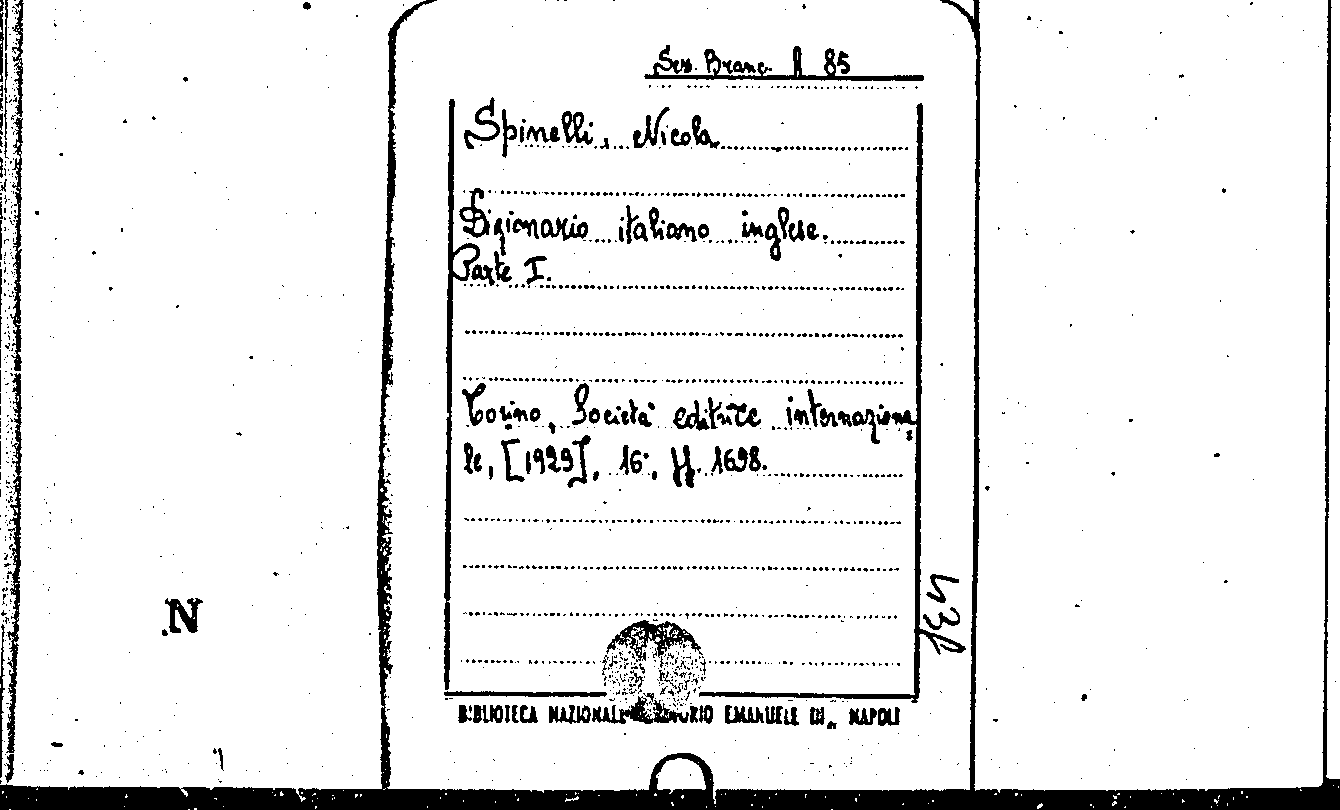 Sez. Branc. A 85
Spinelli, Nicola
Dizionario italiano inglese.
Parte I.
Torino, Società editrice internaziona
le, [1929], 16°, ff. 1698.
N
BIBLIOTECA NAZIONALE EMANUELE III„ NAPOLI